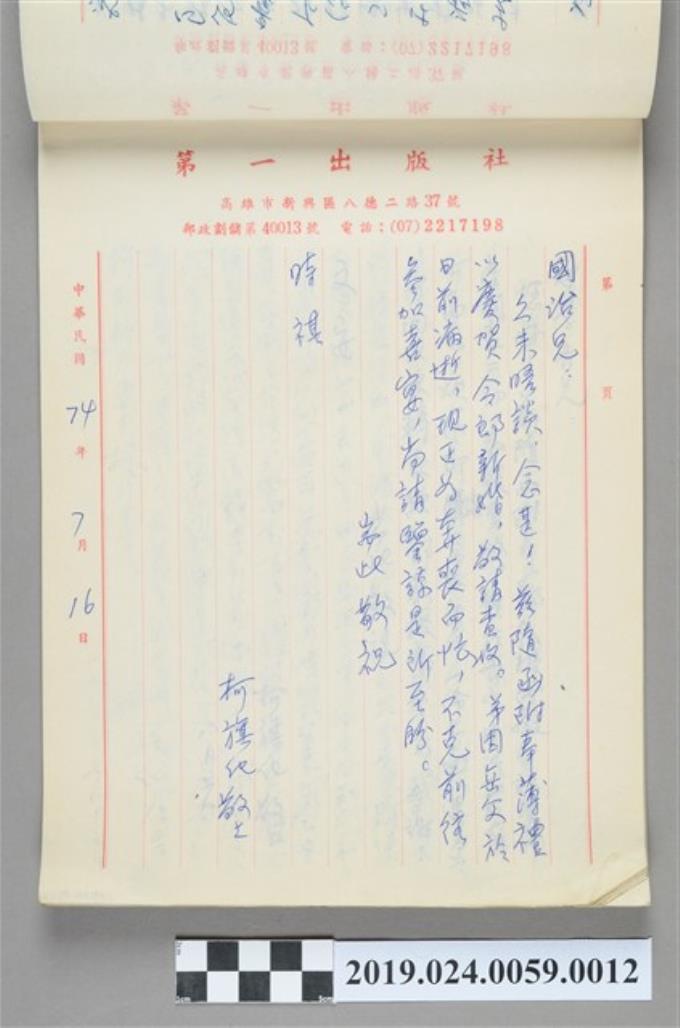 郵政劃儲第40013號 電話：(07)2217198
第一出版社
高雄市新興區八德二路37號
郵政劃儲第40013號 電話：(07)2217198
第 頁
國治兄：
久未晤談、念甚！茲隨函附奉薄禮
以慶賀 令郎新婚，敬請查收。弟因岳父於
日前病逝，現正為奔喪而忙，不克前往
參加喜宴，尚請鑒諒是所至盼。
耑此敬祝
時祺
柯旗化敬上
中華民國74年7月16日
2019.024.0059.0012